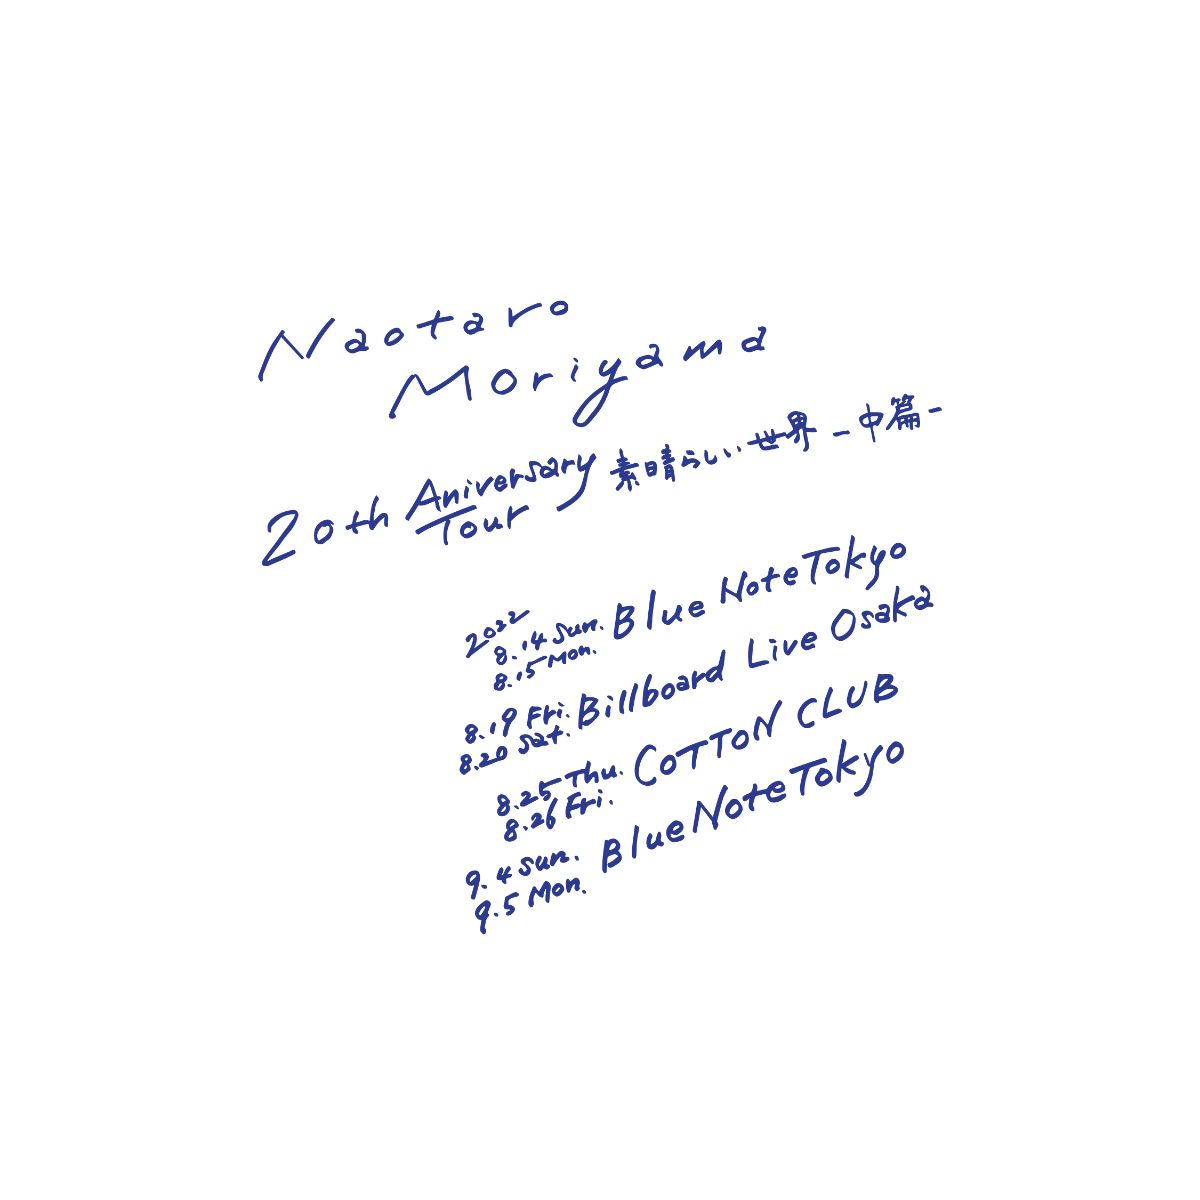 Naotaro
Moriyama
20th Aniversary
Tour
素晴らしい世界 -中篇-
2022
8.14 Sun.
8.15 Mon.
Blue Note Tokyo
8.19 Fri.
8.20 Sat.
Billboard Live Osaka
8.25 Thu.
8.26 Fri.
COTTON CLUB
9.4 Sun.
9.5 Mon.
Blue Note Tokyo